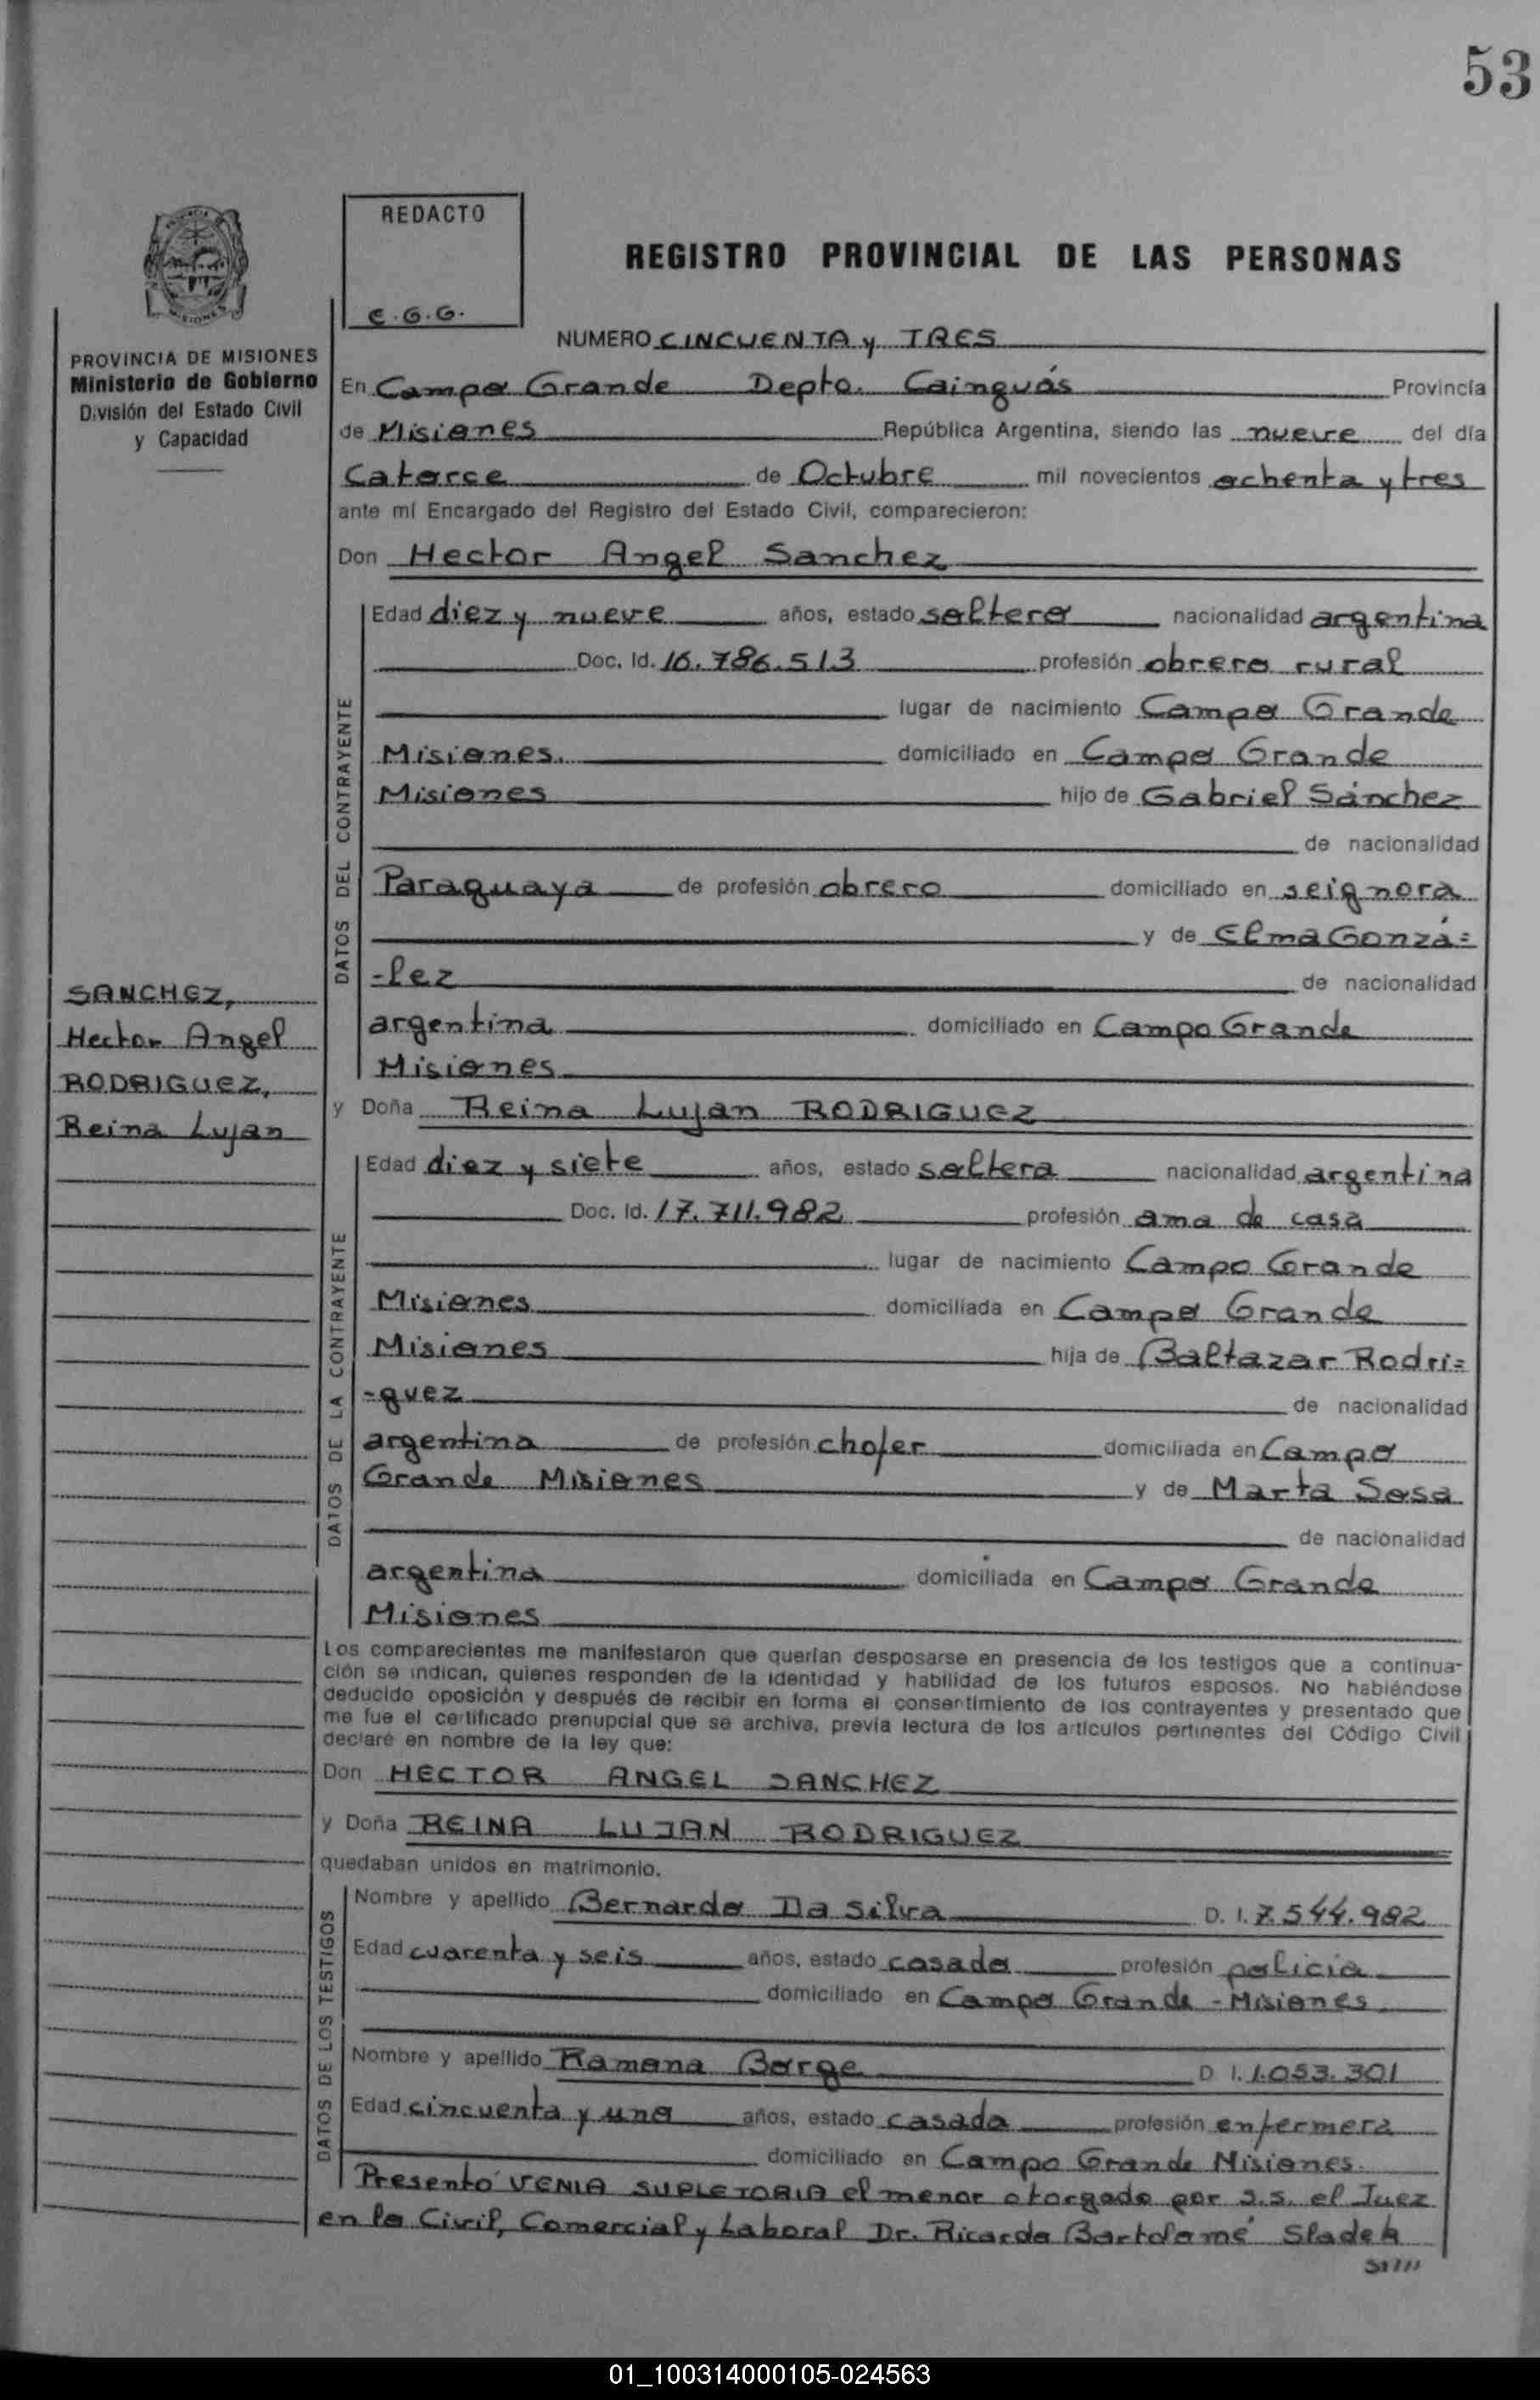 53
REDACTO
E.G.G.
REGISTRO PROVINCIAL DE LAS PERSONAS
PROVINCIA DE MISIONES
Ministerio de Gobierno
División del Estado Civil
y Capacidad
NUMERO CINCUENTA y TRES
En Campo Grande Depto. Cainguás Provincia
de Misiones República Argentina, siendo las nueve del día
Catorce de Octubre mil novecientos ochenta y tres
ante mí Encargado del Registro del Estado Civil, comparecieron:
Don Hector Angel Sanchez
DATOS DEL CONTRAYENTE
Edad diez y nueve años, estado soltero nacionalidad argentina
Doc. Id. 16.786.513 profesión obrero rural
lugar de nacimiento Campo Grande
Misiones. domiciliado en Campo Grande
Misiones hijo de Gabriel Sánchez
de nacionalidad
Paraguaya de profesión obrero domiciliado en seignora
y de Elma Gonzá=
-lez de nacionalidad
argentina domiciliado en Campo Grande
Misiones
SANCHEZ,
Hector Angel
RODRIGUEZ,
Reina Lujan
y Doña Reina Lujan RODRIGUEZ
DATOS DE LA CONTRAYENTE
Edad diez y siete años, estado soltera nacionalidad argentina
Doc. Id. 17.711.982 profesión ama de casa
lugar de nacimiento Campo Grande
Misiones domiciliada en Campo Grande
Misiones hija de Baltazar Rodri=
=guez de nacionalidad
argentina de profesión chofer domiciliada en Campo
Grande Misiones y de Marta Sosa
de nacionalidad
argentina domiciliada en Campo Grande
Misiones
Los comparecientes me manifestaron que querían desposarse en presencia de los testigos que a continua-
ción se indican, quienes responden de la identidad y habilidad de los futuros esposos. No habiéndose
deducido oposición y después de recibir en forma el consentimiento de los contrayentes y presentado que
me fue el certificado prenupcial que se archiva, previa lectura de los artículos pertinentes del Código Civil
declaré en nombre de la ley que:
Don HECTOR ANGEL SANCHEZ
y Doña REINA LUJAN RODRIGUEZ
quedaban unidos en matrimonio.
DATOS DE LOS TESTIGOS
Nombre y apellido Bernardo Da Silva D. I. 7.544.982
Edad cuarenta y seis años, estado casado profesión policia
domiciliado en Campo Grande - Misiones
Nombre y apellido Ramona Borge D. I. 1.053.301
Edad cincuenta y una años, estado casada profesión enfermera
domiciliado en Campo Grande Misiones.
Presentó VENIA SUPLETORIA el menor otorgado por S.S. el Juez
en lo Civil, Comercial y Laboral Dr. Ricardo Bartolomé Sladek
01_100314000105-024563